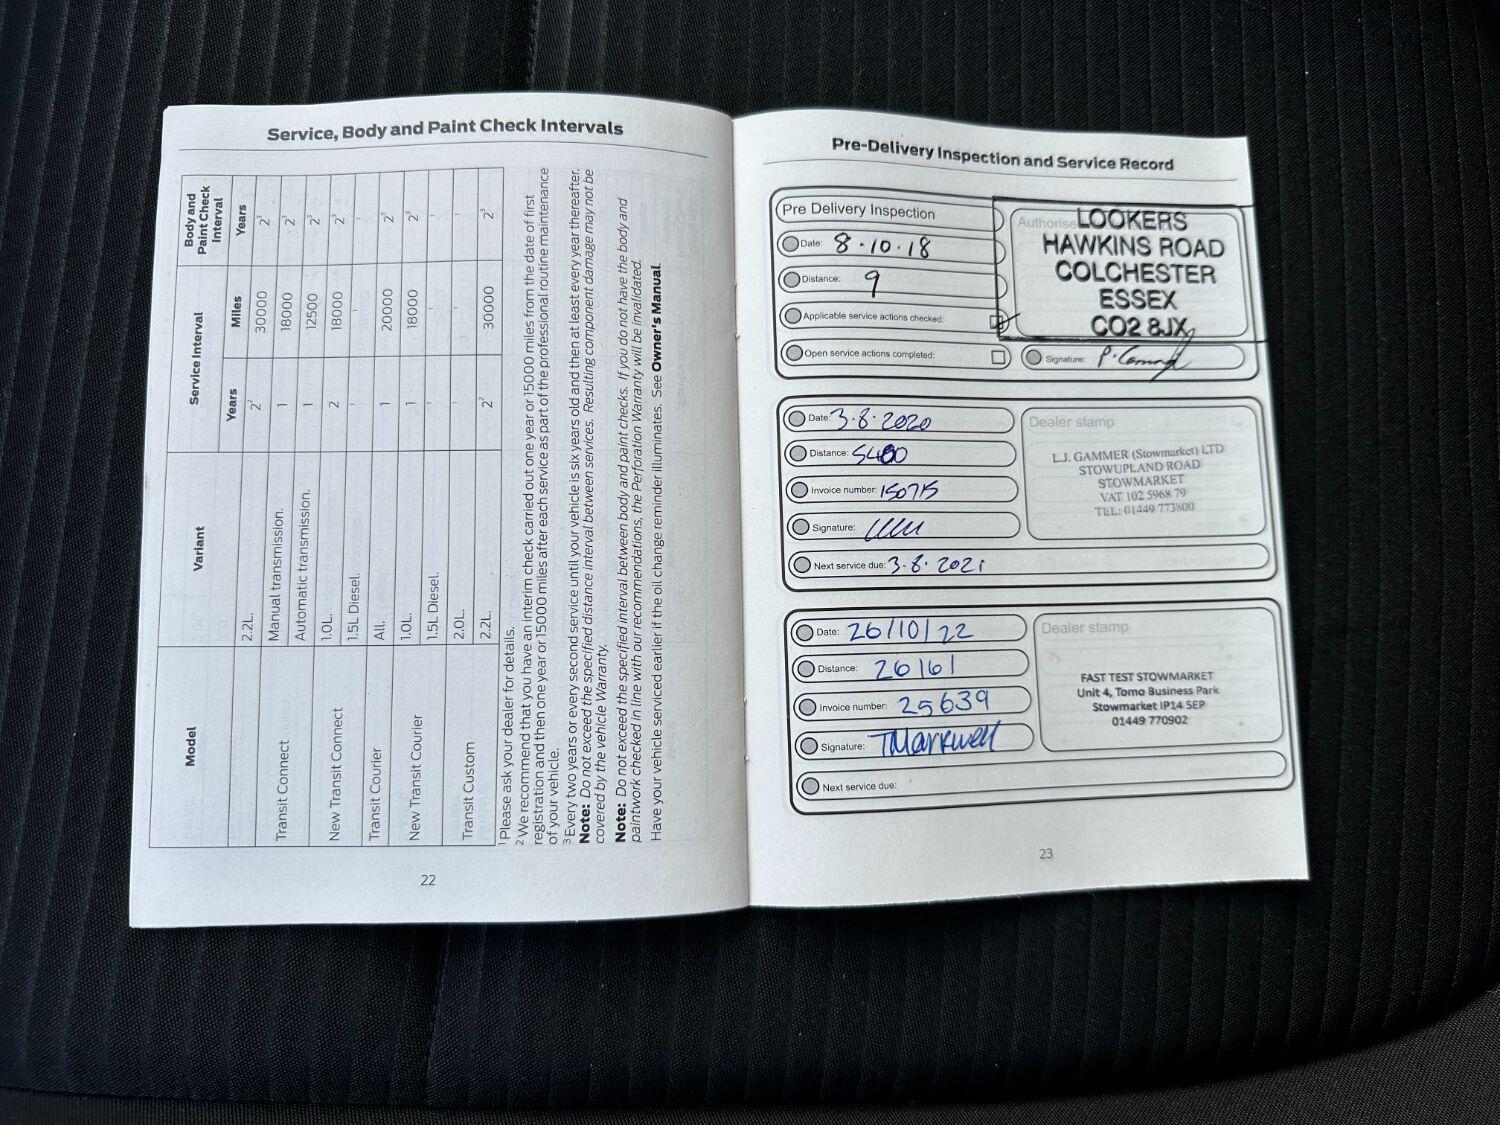 Service, Body and Paint Check Intervals
Model
Variant
Service Interval
Body and
Paint Check
Interval
Years
Miles
Years
2.2L. 2² 30000 2³
Transit Connect
Manual transmission. 1 18000 2³
Automatic transmission. 1 12500 2³
New Transit Connect
1.0L. 2 18000 2³
1.5L Diesel. ¹ ¹ ¹
Transit Courier
All. 1 20000 2³
New Transit Courier
1.0L. 1 18000 2³
1.5L Diesel. ¹ ¹ ¹
Transit Custom
2.0L. ¹ ¹ ¹
2.2L. 2² 30000 2³
¹ Please ask your dealer for details.
² We recommend that you have an interim check carried out one year or 15000 miles from the date of first
registration and then one year or 15000 miles after each service as part of the professional routine maintenance
of your vehicle.
³ Every two years or every second service until your vehicle is six years old and then at least every year thereafter.
Note: Do not exceed the specified distance interval between services. Resulting component damage may not be
covered by the vehicle Warranty.
Note: Do not exceed the specified interval between body and paint checks. If you do not have the body and
paintwork checked in line with our recommendations, the Perforation Warranty will be invalidated.
Have your vehicle serviced earlier if the oil change reminder illuminates. See Owner's Manual.
22
Pre-Delivery Inspection and Service Record
Pre Delivery Inspection
Date: 8·10·18
Distance: 9
Applicable service actions checked:
Open service actions completed:
Authorise
LOOKERS
HAWKINS ROAD
COLCHESTER
ESSEX
CO2 8JX
Signature:
Date: 3·8·2020
Distance: 5480
Invoice number: 150715
Signature:
Next service due: 3·8·2021
Dealer stamp
L.J. GAMMER (Stowmarket) LTD
STOWUPLAND ROAD
STOWMARKET
VAT 102 5968 79
TEL: 01449 773800
Date: 26/10/22
Distance: 26161
Invoice number: 25639
Signature: TMarkwell
Next service due:
Dealer stamp
FAST TEST STOWMARKET
Unit 4, Tomo Business Park
Stowmarket IP14 5EP
01449 770902
23